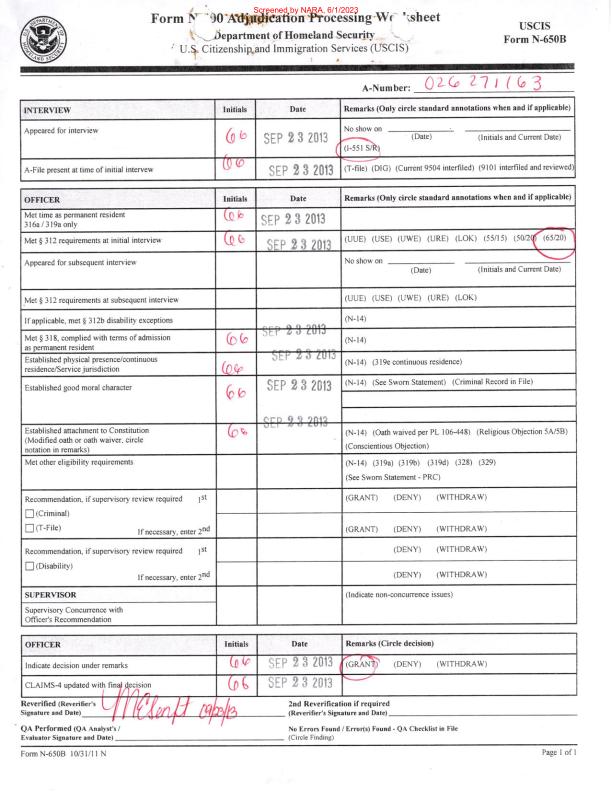 Screened by NARA, 6/1/2023
Form N 90 Adjudication Processing Wo 'sheet
Department of Homeland Security
U.S. Citizenship and Immigration Services (USCIS)
USCIS
Form N-650B
A-Number: 026 271 163
INTERVIEW Initials Date Remarks (Only circle standard annotations when and if applicable)
Appeared for interview SEP 23 2013 No show on
(Date) (Initials and Current Date)
(I-551 S/R)
A-File present at time of initial intervew SEP 23 2013 (T-file) (DIG) (Current 9504 interfiled) (9101 interfiled and reviewed)
OFFICER Initials Date Remarks (Only circle standard annotations when and if applicable)
Met time as permanent resident
316a / 319a only SEP 23 2013
Met § 312 requirements at initial interview SEP 23 2013 (UUE) (USE) (UWE) (URE) (LOK) (55/15) (50/20) (65/20)
Appeared for subsequent interview No show on
(Date) (Initials and Current Date)
Met § 312 requirements at subsequent interview (UUE) (USE) (UWE) (URE) (LOK)
If applicable, met § 312b disability exceptions (N-14)
Met § 318, complied with terms of admission
as permanent resident SEP 23 2013 (N-14)
Established physical presence/continuous
residence/Service jurisdiction SEP 23 2013 (N-14) (319e continuous residence)
Established good moral character SEP 23 2013 (N-14) (See Sworn Statement) (Criminal Record in File)
Established attachment to Constitution SEP 23 2013 (N-14) (Oath waived per PL 106-448) (Religious Objection 5A/5B)
(Modified oath or oath waiver, circle
notation in remarks) (Conscientious Objection)
Met other eligibility requirements (N-14) (319a) (319b) (319d) (328) (329)
(See Sworn Statement - PRC)
Recommendation, if supervisory review required 1st (GRANT) (DENY) (WITHDRAW)
(Criminal)
(T-File) If necessary, enter 2nd (GRANT) (DENY) (WITHDRAW)
Recommendation, if supervisory review required 1st (DENY) (WITHDRAW)
(Disability)
If necessary, enter 2nd (DENY) (WITHDRAW)
SUPERVISOR (Indicate non-concurrence issues)
Supervisory Concurrence with
Officer's Recommendation
OFFICER Initials Date Remarks (Circle decision)
Indicate decision under remarks SEP 23 2013 (GRANT) (DENY) (WITHDRAW)
CLAIMS-4 updated with final decision SEP 23 2013
Reverified (Reverifier's
Signature and Date) 09/23/13
2nd Reverification if required
(Reverifier's Signature and Date)
QA Performed (QA Analyst's /
Evaluator Signature and Date)
No Errors Found / Error(s) Found - QA Checklist in File
(Circle Finding)
Form N-650B 10/31/11 N Page 1 of 1